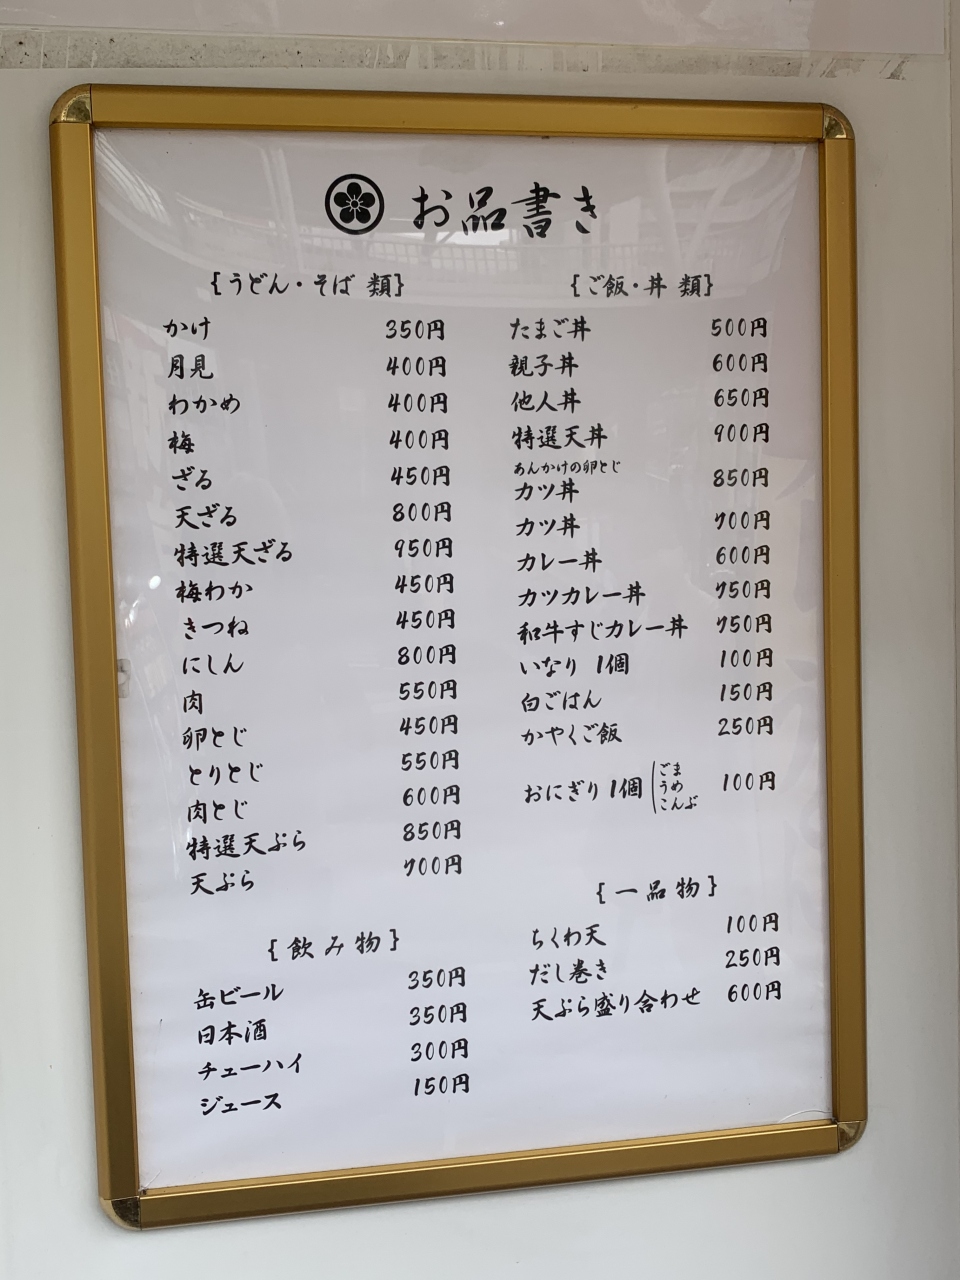 お品書き
{うどん・そば 類}
かけ 350円
月見 400円
わかめ 400円
梅 400円
ざる 450円
天ざる 800円
特選天ざる 950円
梅わか 450円
きつね 450円
にしん 800円
肉 550円
卵とじ 450円
とりとじ 550円
肉とじ 600円
特選天ぷら 850円
天ぷら 700円
{飲み物}
缶ビール 350円
日本酒 350円
チューハイ 300円
ジュース 150円
{ご飯・丼 類}
たまご丼 500円
親子丼 600円
他人丼 650円
特選天丼 900円
あんかけの卵とじ
カツ丼 850円
カツ丼 700円
カレー丼 600円
カツカレー丼 750円
和牛すじカレー丼 750円
いなり 1個 100円
白ごはん 150円
かやくご飯 250円
おにぎり 1個 100円
ごま
うめ
こんぶ
{一品物}
ちくわ天 100円
だし巻き 250円
天ぷら盛り合わせ 600円